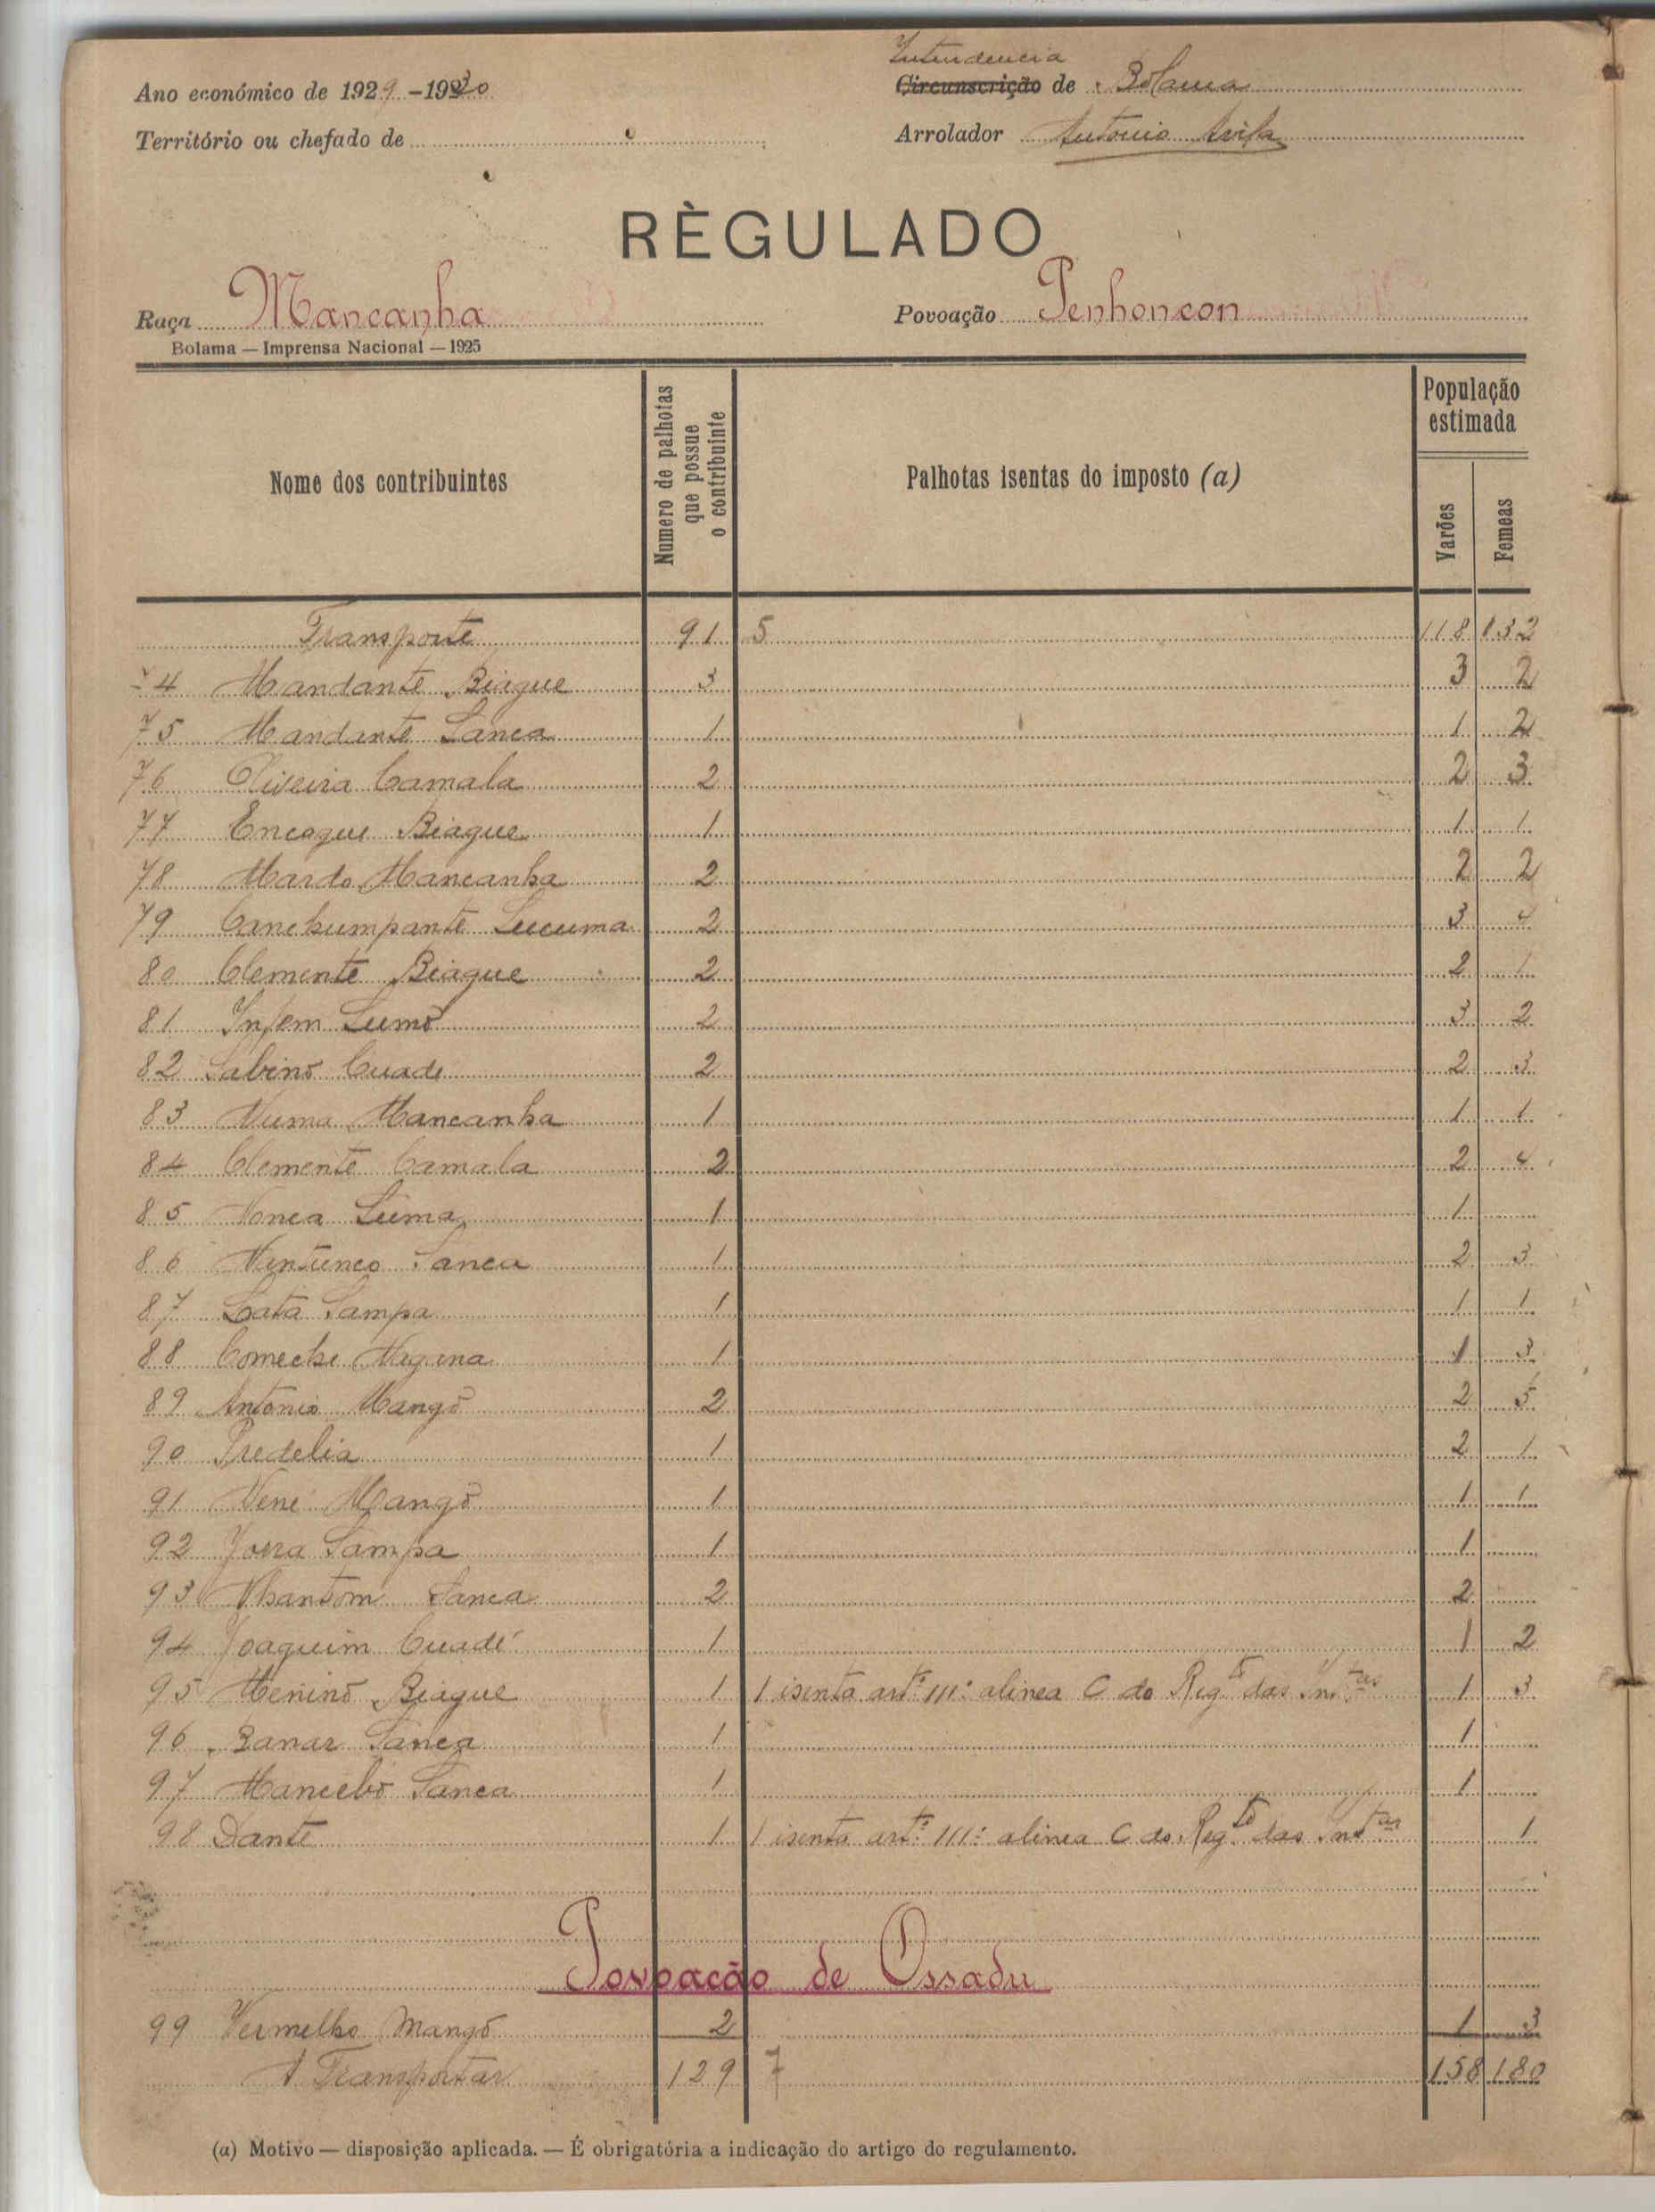 Ano económico de 1929-1930
Intendencia
Circunscrição de Bolama
Território ou chefado de
Arrolador Antonio Avila
RÈGULADO
Raça Mancanha
Povoação Penhoncon
Bolama — Imprensa Nacional — 1925
Nome dos contribuintes
Numero de palhotas que possue o contribuinte
Palhotas isentas do imposto (a)
População estimada
Varões
Femeas
Transporte 91 5 118 132
74 Mandante Biague 3 3 2
75 Mandante Sanca 1 1 2
76 Oliveira Camala 2 2 3
77 Encague Biague 1 1 1
78 Mardo Mancanha 2 2 2
79 Canchumpante Lucuma 2 3 4
80 Clemente Biague 2 2 1
81 Infem Lumo 2 3 2
82 Sabino Cuade 2 2 3
83 Numa Mancanha 1 1 1
84 Clemente Camala 2 2 4
85 Nonca Luma 1 1
86 Nintunco Sanca 1 2 3
87 Lata Sampa 1 1 1
88 Comeche 1 1 3
89 Antonio Mangõ 2 2 5
90 Predelia 1 2 1
91 Nené Mangõ 1 1 1
92 Joera Sampa 1 1
93 Nhantom Sanca 2 2
94 Joaquim Cuadé 1 1 2
95 Menino Biague 1 1 isenta artº 111º alinea C do Regto das 1 3
96 Banar Sanca 1 1
97 Mancebo Sanca 1 1
98 Dante 1 1 isenta artº 111º alinea C do Regto das 1
Povoacão de Ossadu
99 Vermelho Mangõ 2 1 3
A Transportar 129 7 158 180
(a) Motivo — disposição aplicada. — É obrigatória a indicação do artigo do regulamento.